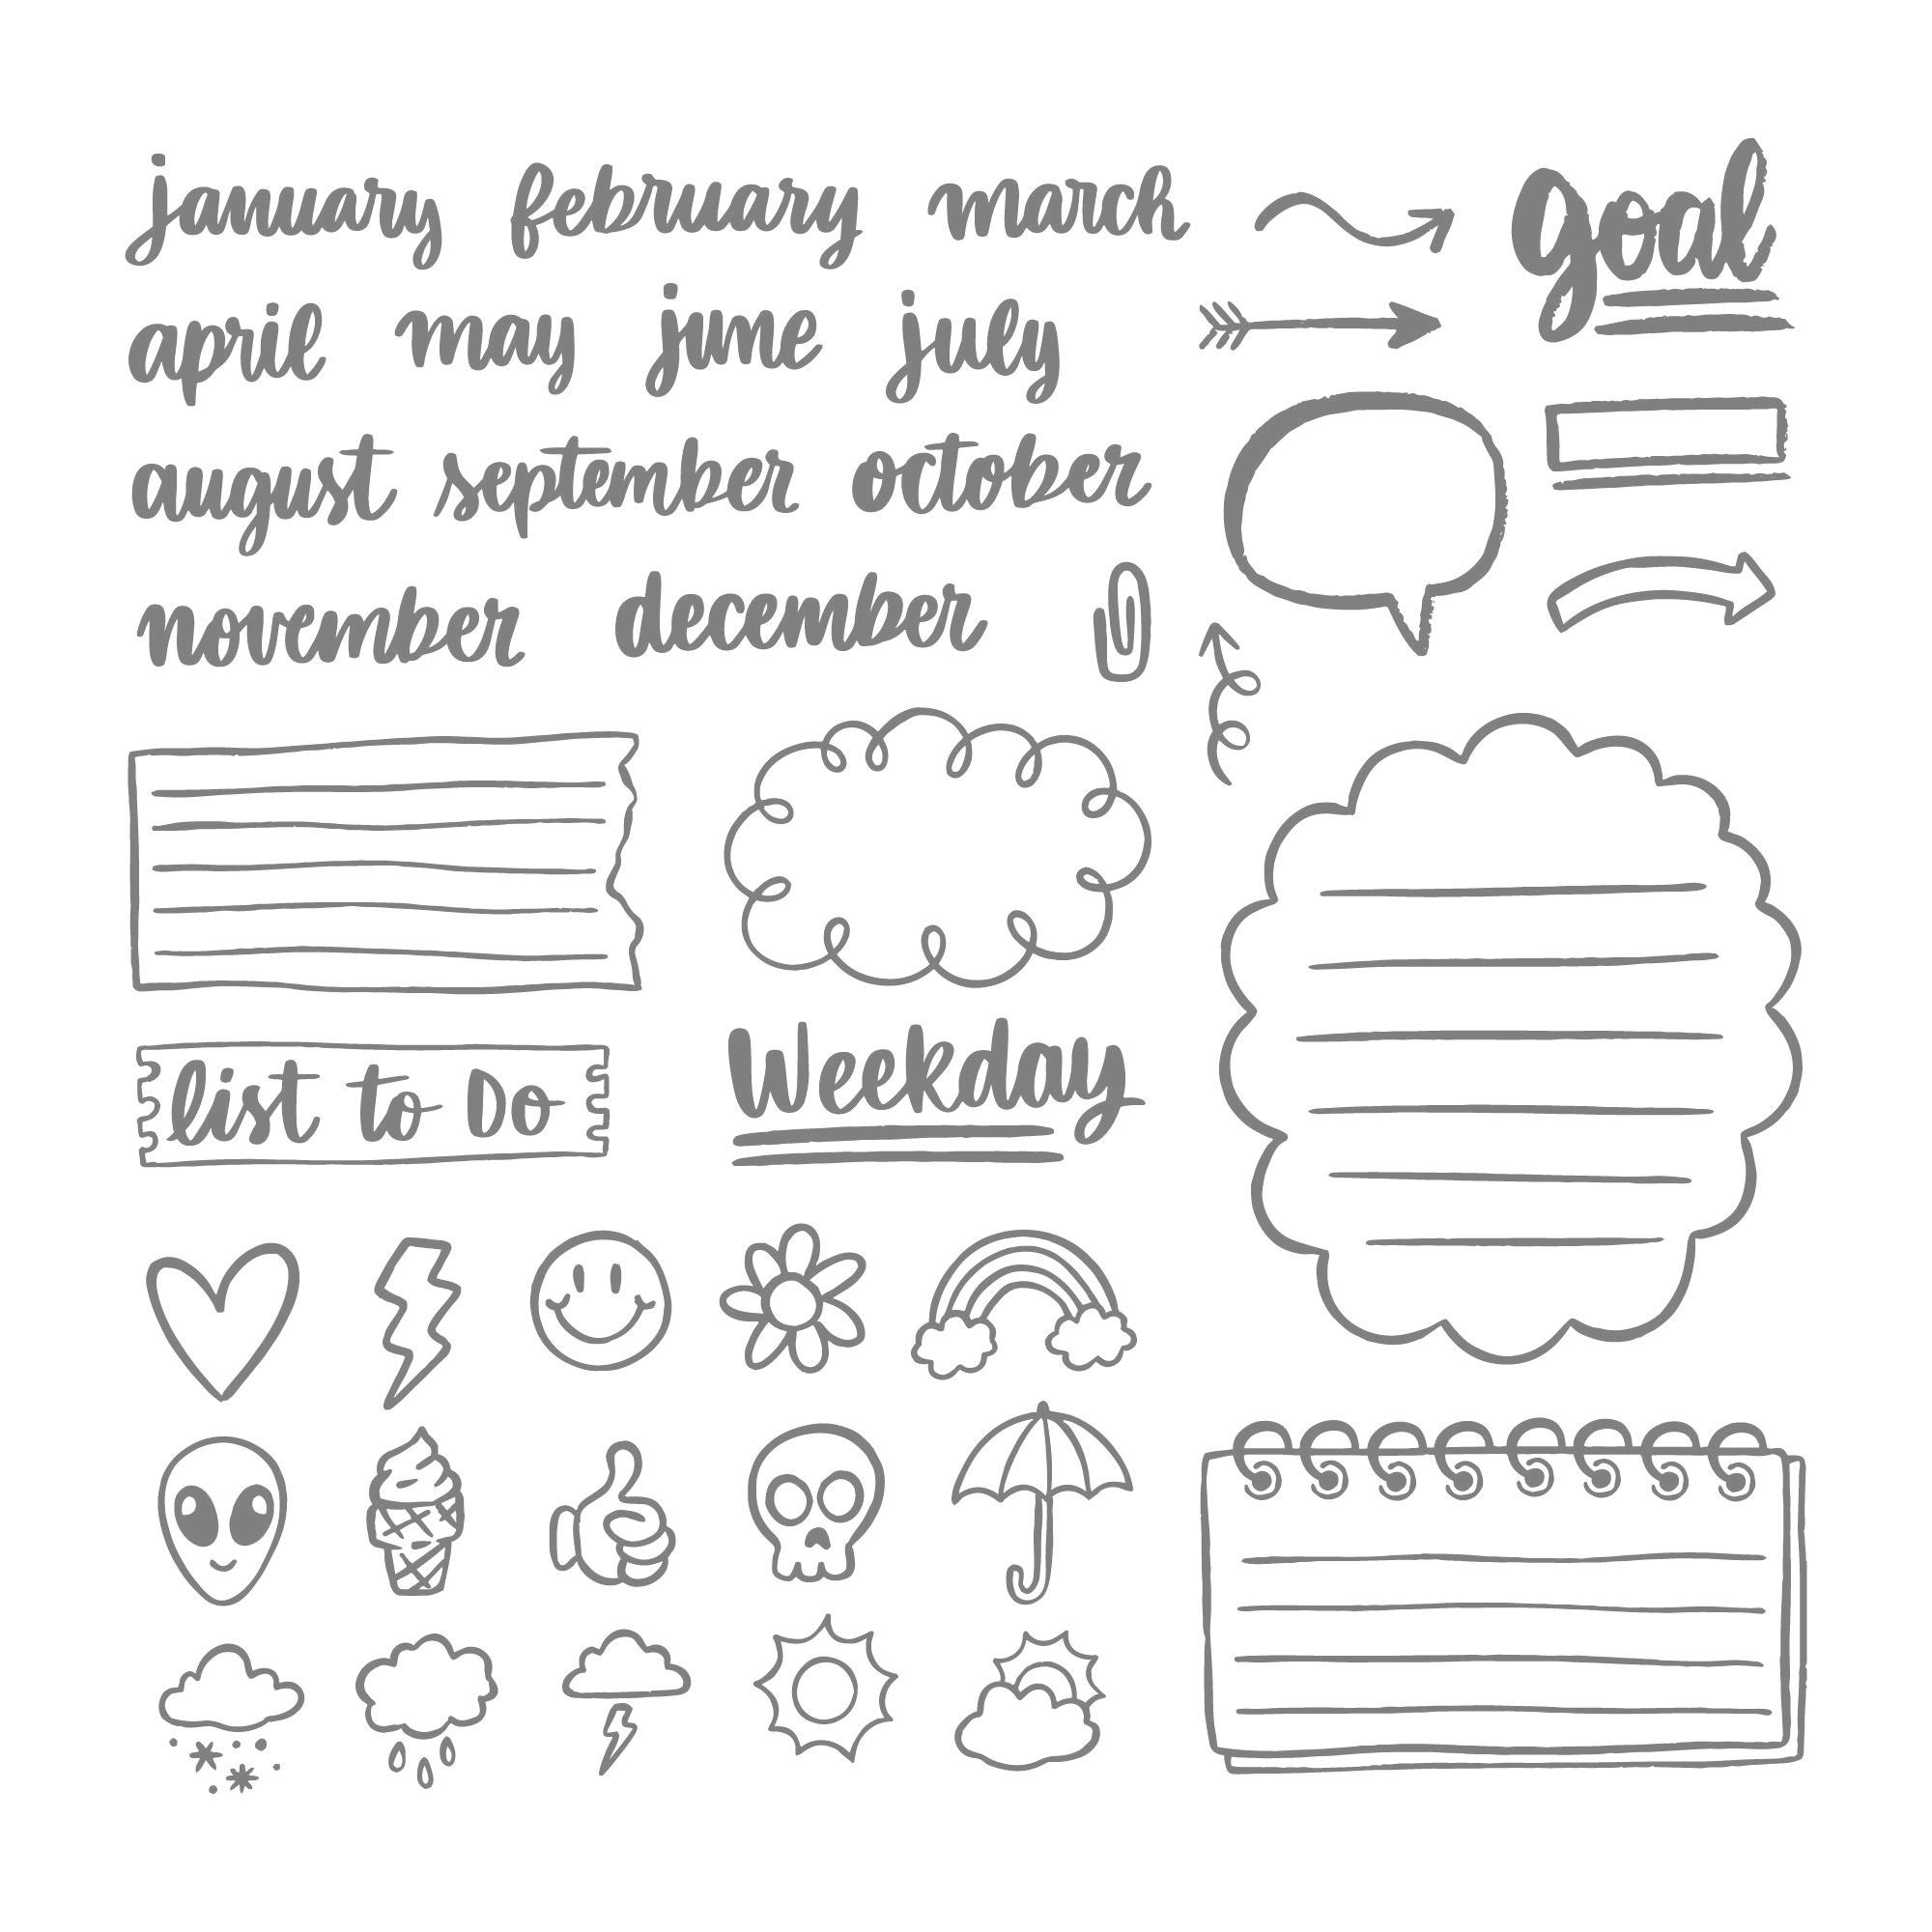 january february march goal
april may june july
august september october
november december
List to Do
Weekday